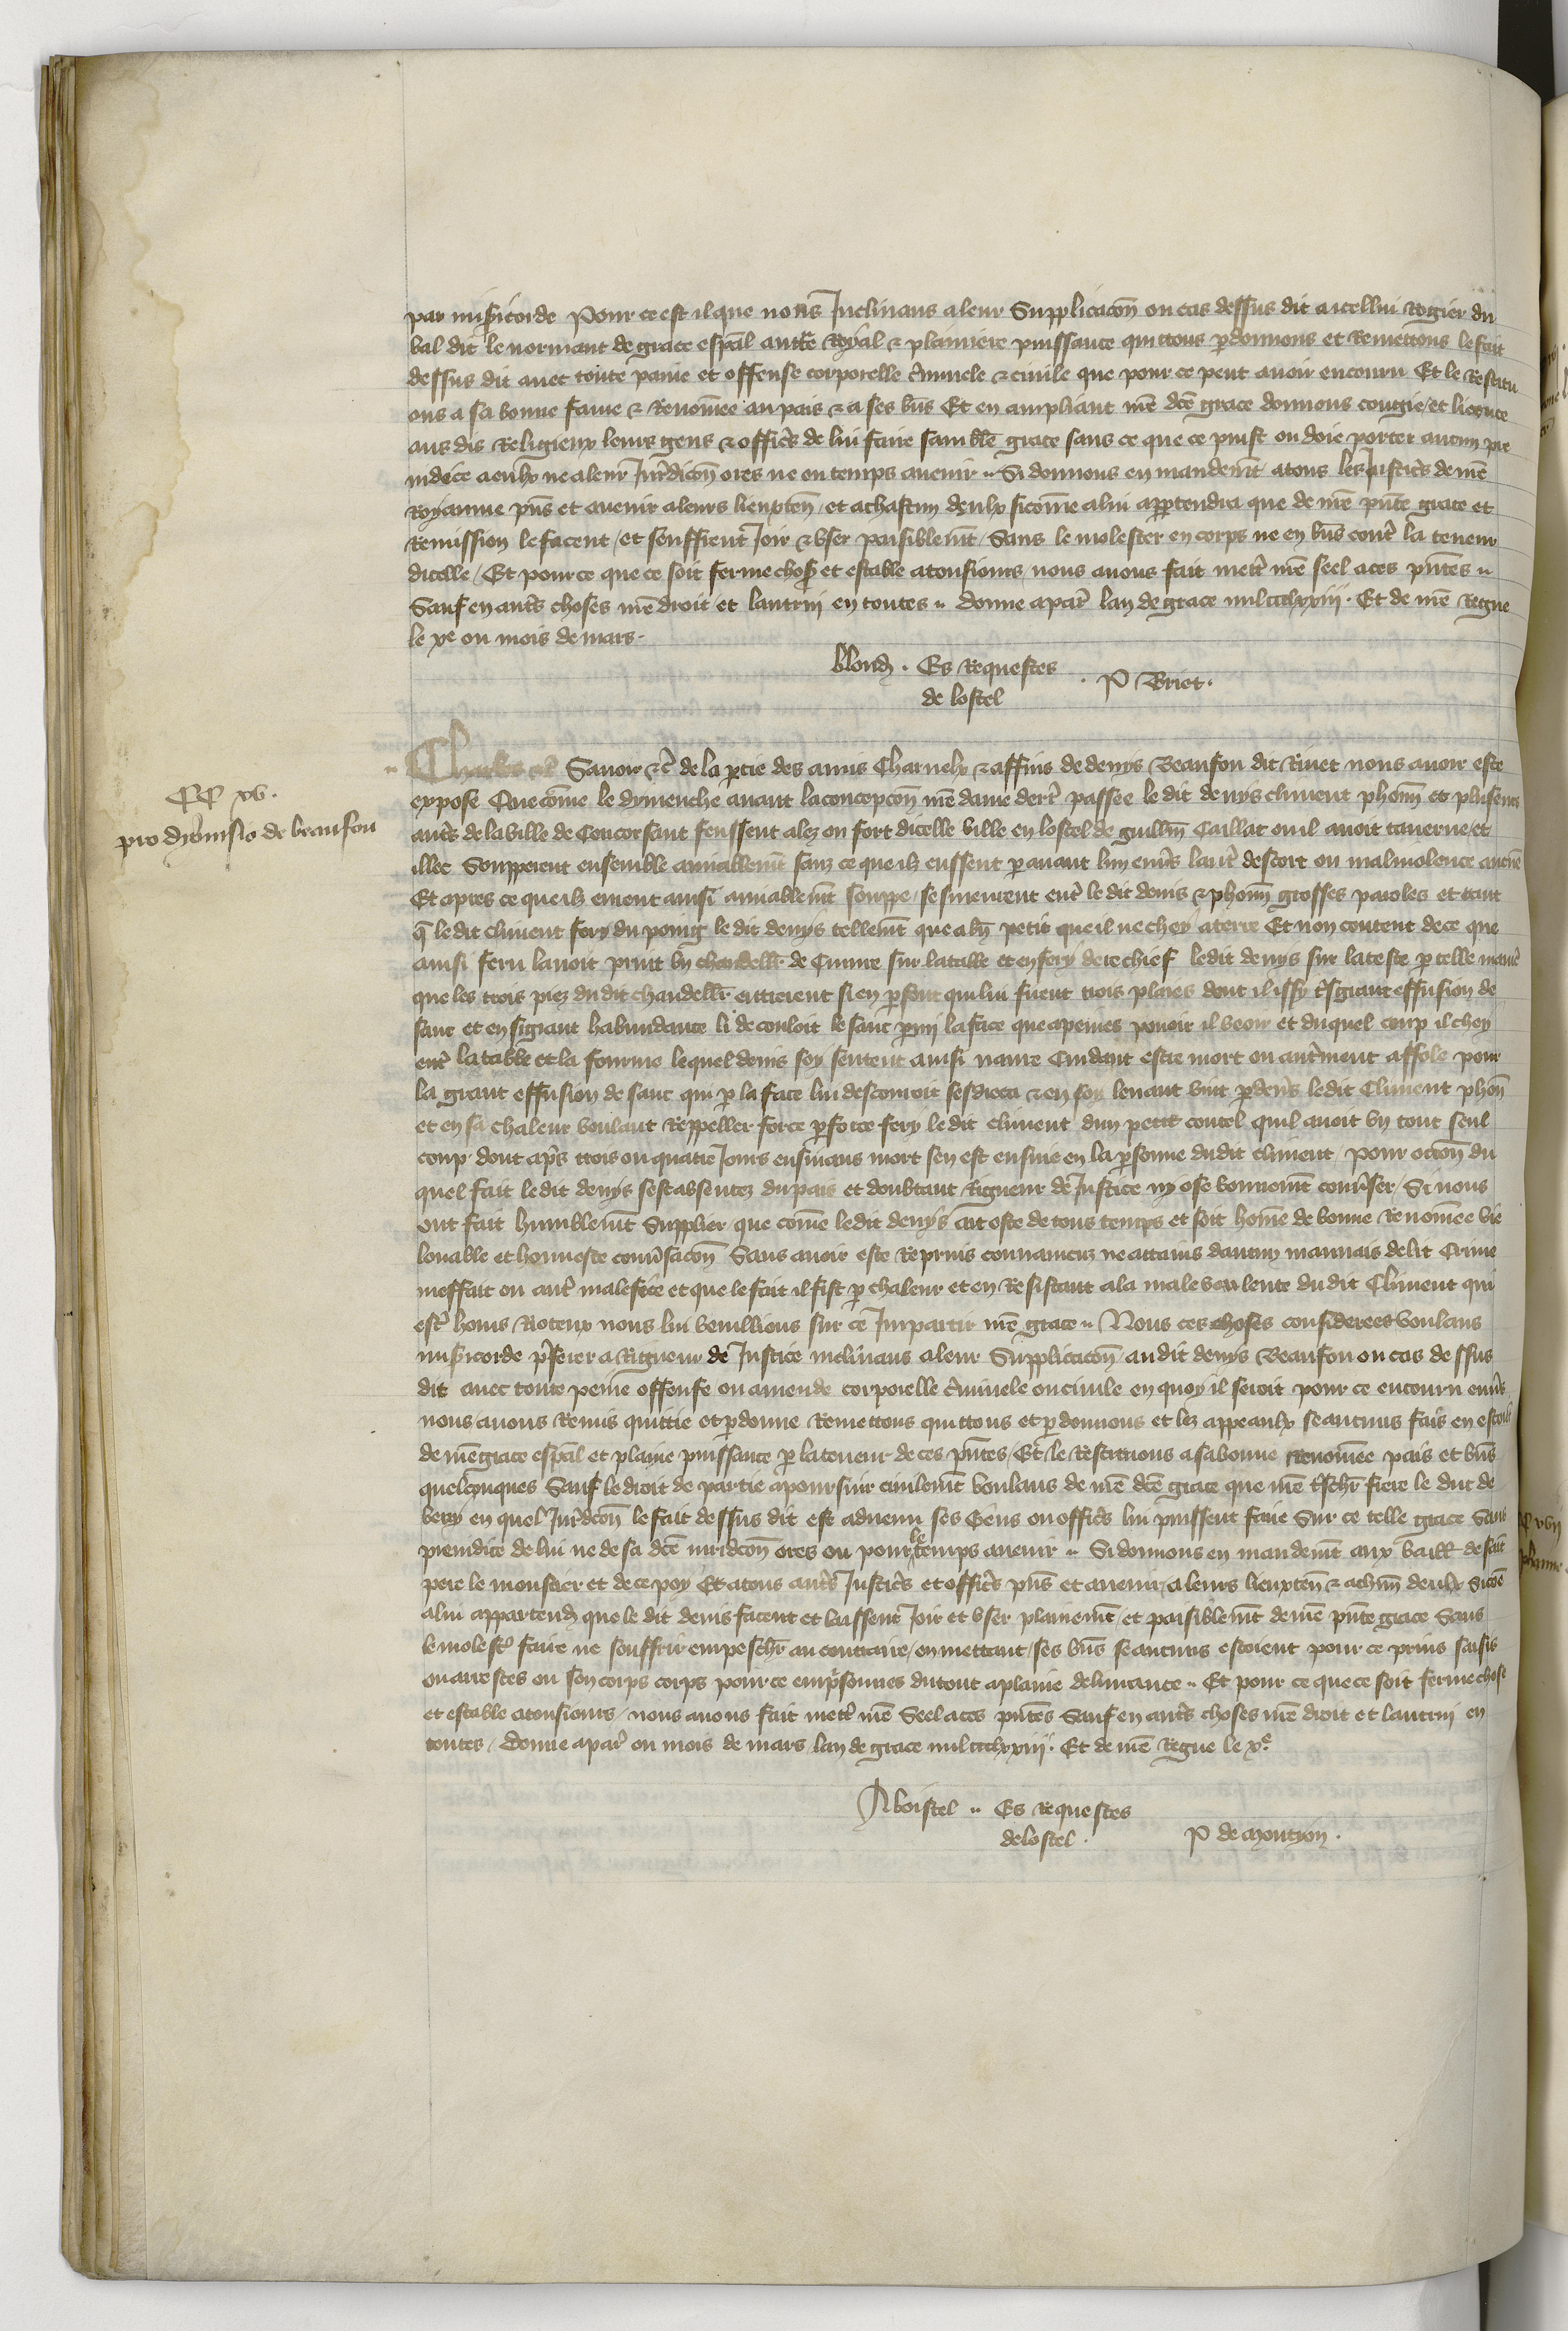 par mis̄icorde Pour ce est il que nous Inclinans a leur Supplicacōn ou cas dessus dit a icellui Rogier du
val dit le normant de grace esp̄al auct̄e Royal & plainiere puissance quittons p̱donnons et Remettons le fait
dessus dit auec toute paine et offense corporelle c̄minele & ciuile que pour ce peut auoir encouru Et le Restitu
ons a sa bonne fame & Renom̄ee au pais & a ses bn̄s Et en ampliant n̄re dc̄e grace donnons congie et licence
aus dis Religieux leurs gens & offic̄s de lui faire samblē grace sans ce que ce puist ou doie porter aucun pre
iudice a eulx ne a leur Jur̄dicōn ores ne ou temps auenir Si donnons en mandem̄t a tous les Justic̄s de n̄re
Royaume p̄ns et auenir a leurs lieuxten̄ et a chascun deulx sicom̄e a lui app̱tendra que de n̄re p̄nte grace et
Remission le facent et seuffrent Joir & vser paisiblem̄t Sans le molester en corps ne en bn̄s cont̄ la teneur
dicelle Et pour ce que ce soit ferme chose et estable a tousiours nous auons fait mett̄ n̄re seel a ces p̄ntes
Sauf en aut̄s choses n̄re droit et lautrui en toutes donne a par̄ lan de grace mil ccclxxiii. Et de n̄re Regne
le xe ou mois de mars.
blond. Es Requestes
de lostel . P Briet.
CC xv.
pro dyonisio de beaufou
Charles &c̄ Sauoir &c̄ de la p̱tie des amis Charnelx & affins de denys Beaufou dit Riuet nous auoir este
expose Que com̄e le dymenche auant la concepcōn n̄re dame dert̄ passee le dit denys climent phōn et pluseurs
aut̄s de la ville de Concorsaut feussent alez ou fort dicelle ville en lostel de guill̄m Caillat ou il auoit tauerne et
illec Soupperent ensemble amiablem̄t sanz ce que ilz eussent p̱ auant lun enu̱s laut̄ descort ou maliuolence aucūe
Et apres ce que ilz eurent ainsi amiablem̄t souppe se smeurent ent̄ le dit denis & phōn grosses paroles et tant
q̄ le dit climent fery du poing le dit denys tellem̄t que a bn̄ petit que il ne chey a terre Et non content de ce que
ainsi feru lauoit print vn chandell̄ de Cuiure sur la table et en fery derechief le dit denys sur la teste p̱ telle manie̱
que les trois piez du dit chandell̄ entrerent si en p̱font qui lui firent trois plaies dont il issy t̄s grant effusion de
sanc et en si grant habundance li decouloit le sanc p̱mi la face que a peines pouoit il veoir et duquel coup il chey
ent̄ la table et la fourme lequel denis soy sentent ainsi naure Cuidant estre mort ou aut̄ment affole pour
la grant effusion de sanc qui p̱ la face lui descouroit se sdreca & en soy leuant vint p̱ deu̱s le dit Climent phōn
et en sa chaleur voulant Reppeller force p̱ force fery le dit climent dun petit coutel quil auoit vn tout seul
coup dont ap̄s trois ou quatre Jours ensiuans mort sen est ensuie en la p̱sonne du dit climent Pour occōn du
quel fait le dit denys sest absentez du pais et doubtant Rigueur de Justice ny ose bonnem̄t conu̱ser Si nous
ont fait humblem̄t Supplier que com̄e le dit denys ait este de tous temps et soit hom̄e de bonne Renom̄ee vie
louable et honneste conu̱sacōn Sans auoir este Reprins conuaincuz ne attains daucun mauuais delit Crime
meffait ou aut̄ malefice et que le fait il fist p̱ chaleur et en Resistant a la maleueulente du dit Climent qui
est̄ homs Rioteux nous lui veuillions sur ce Impartir n̄re grace Nous ces choses considerees voulans
mis̄icorde p̄ferer a Rigueur de Justice inclinans a leur Supplicacōn au dit denys Beaufou ou cas dessus
dit auec toute peine offense ou amende corporelle c̄minele ou ciuile en quoy il seroit pour ce encouru enu̱s
nous auons Remis quittie et p̱donne Remettons quittons et p̱donnons et lez appeaulx se aucuns fais en estoient
de n̄re grace esp̄al et plaine puissance p̱ la teneur de ces p̄ntes Et le Restituons a sa bonne renom̄ee pais et bn̄s
quelc̄unques Sauf le droit de partie a poursuir ciuilem̄t voulans de n̄re dc̄e grace que n̄re t̄schr̄ frere le duc de
berry en quel Jur̄dcōn le fait dessus dit est aduenu ses Gens ou offic̄s lui puissent faire Sur ce telle grace Sans
preiudice de lui ne de sa dc̄e iuridcōn ores ou pour le temps auenir Si donnons en mandem̄t aux baill̄ de saint
pere le monstier et de cepoy Et a tous aut̄s Justic̄s et offic̄s p̄ns et auenir a leurs lieuxten̄ & a chn̄ deulx Sicōe
a lui appartend̄ que le dit denis facent et laissent Joir et vser plainem̄t et paisiblem̄t de n̄re p̄nte grace Sans
le molest̄ faire ne souffrir empeschr̄ au contraire en mettant ses bn̄s se aucuns estoient pour ce prins saisis
ou arrestes ou son corps corps pour ce emp̄sonnes du tout a plaine deliurance Et pour ce que ce soit ferme chose
et estable a tousiours nous auons fait mett̄ n̄re Seel a ces p̄ntes Sauf en aut̄s choses n̄re droit et lautrui en
toutes donne a par̄ ou mois de mars lan de grace mil ccclxxiii. Et de n̄re Regne le xe
Aboistel Es Requestes
de lostel. P de montion.